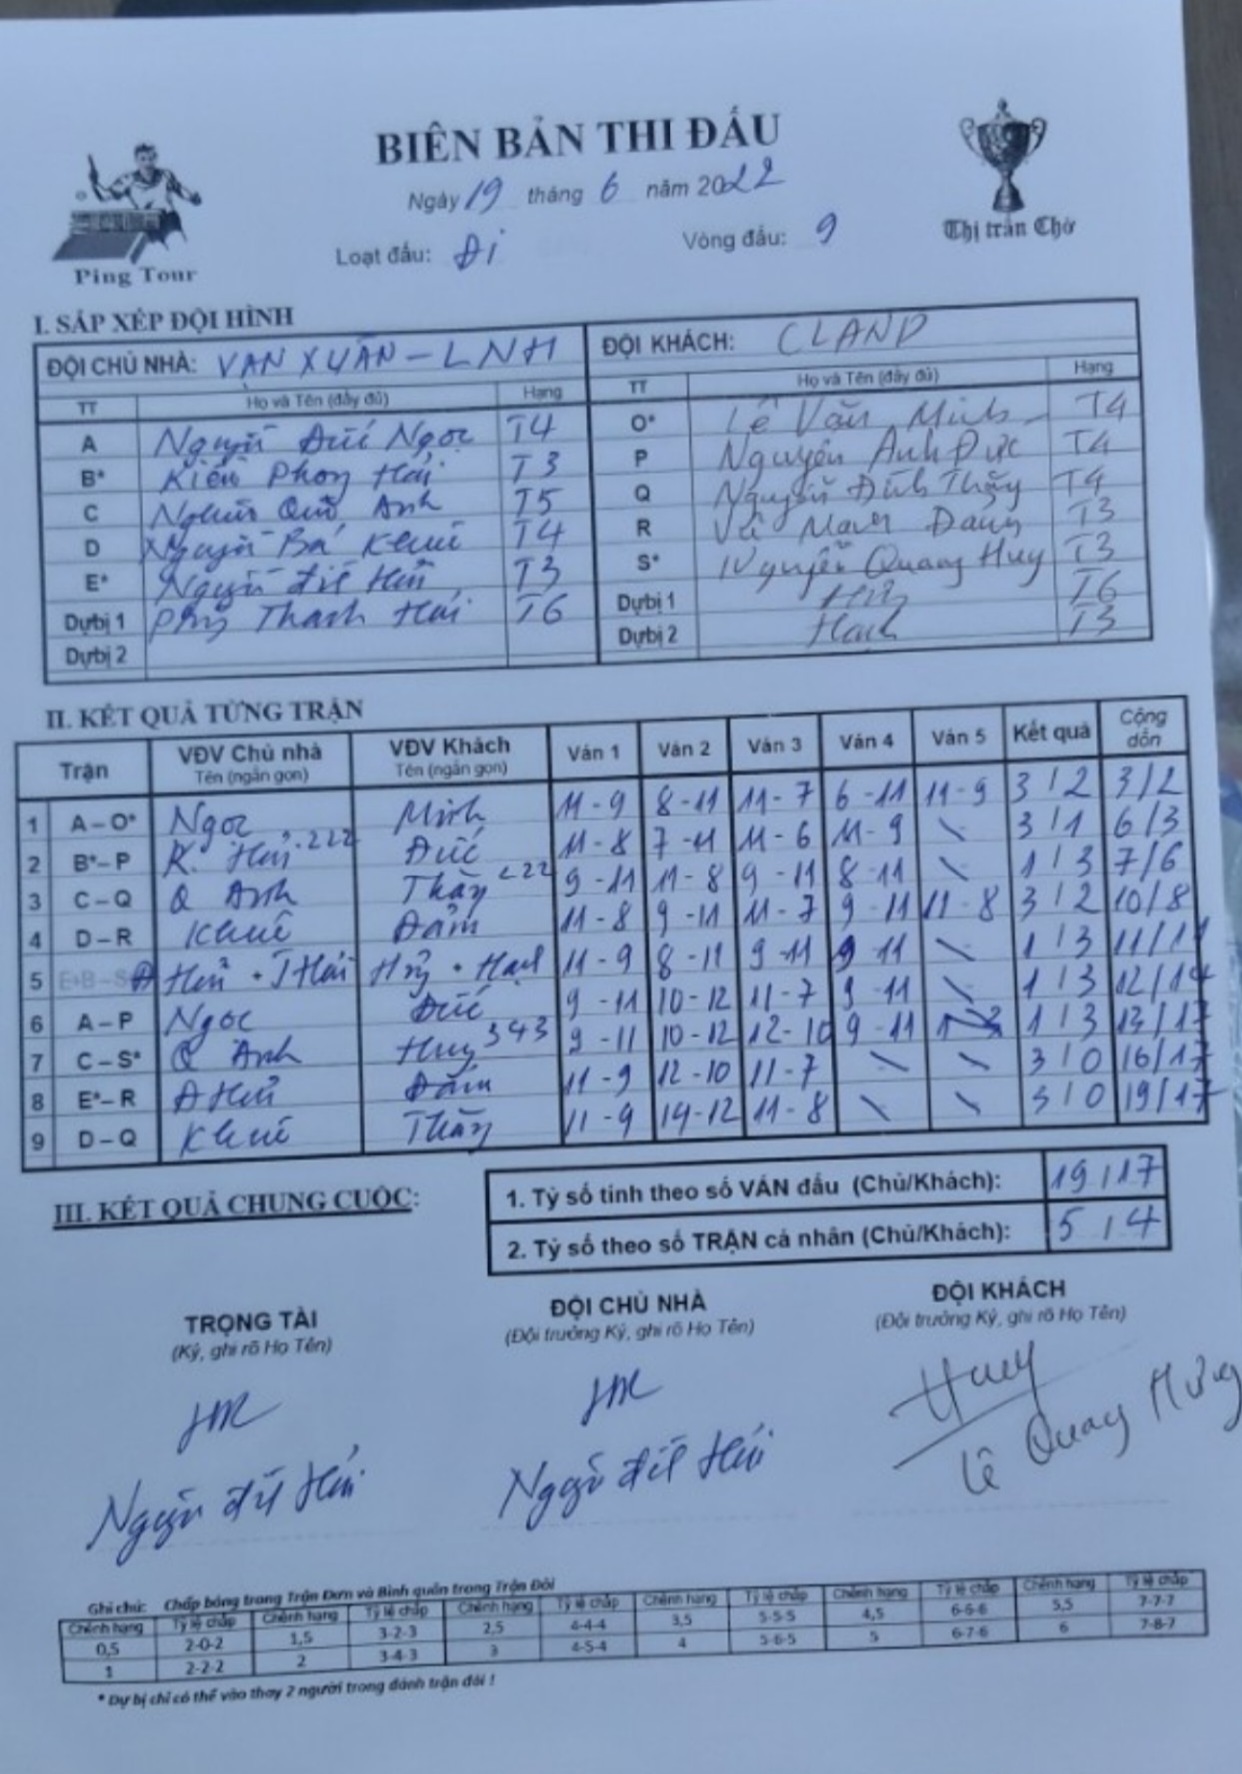 BIÊN BẢN THI ĐẤU
Ngày 19 tháng 6 năm 2022
Loạt đấu: Đi Vòng đấu: 9
Ping Tour
Thị trấn Chờ
I. SẮP XẾP ĐỘI HÌNH
ĐỘI CHỦ NHÀ: VẠN XUÂN - LNH ĐỘI KHÁCH: CLAND
TT Họ và Tên (đầy đủ) Hạng TT Họ và Tên (đầy đủ) Hạng
A Nguyễn Đức Ngọc T4 O* Lê Văn Minh T4
B* Kiều Phong Hải T3 P Nguyễn Anh Đức T4
C Quý Anh T5 Q Nguyễn Đình Thắng T4
D Nguyễn Bá Khuê T4 R Vũ Nam T3
E* Nguyễn T3 S* Nguyễn Quang Huy T3
Dự bị 1 Thanh Hải T6 Dự bị 1 T6
Dự bị 2 Dự bị 2 T3
II. KẾT QUẢ TỪNG TRẬN
Trận VĐV Chủ nhà Tên (ngắn gọn) VĐV Khách Tên (ngắn gọn) Ván 1 Ván 2 Ván 3 Ván 4 Ván 5 Kết quả Cộng dồn
1 A – O* Ngọc Minh 11 - 9 8 - 11 11 - 7 6 - 11 11 - 9 3 / 2 3 / 2
2 B* – P K. Hải . 222 Đức 11 - 8 7 - 11 11 - 6 11 - 9 \ 3 / 1 6 / 3
3 C – Q Q Anh 222 9 - 11 11 - 8 9 - 11 8 - 11 \ 1 / 3 7 / 6
4 D – R Khuê 11 - 8 9 - 11 11 - 7 9 - 11 11 - 8 3 / 2 10 / 8
5 11 - 9 8 - 11 9 - 11 9 - 11 \ 1 / 3 11 / 11
6 A – P Ngọc Đức 9 - 11 10 - 12 11 - 7 9 - 11 \ 1 / 3 12 / 14
7 C – S* Q Anh Huy 343 9 - 11 10 - 12 12 - 10 9 - 11 1 / 3 13 / 17
8 E* – R 11 - 9 12 - 10 11 - 7 \ \ 3 / 0 16 / 17
9 D – Q Khuê 11 - 9 14 - 12 11 - 8 \ \ 3 / 0 19 / 17
III. KẾT QUẢ CHUNG CUỘC:
1. Tỷ số tính theo số VÁN đấu (Chủ/Khách): 19 / 17
2. Tỷ số theo số TRẬN cá nhân (Chủ/Khách): 5 / 4
TRỌNG TÀI ĐỘI CHỦ NHÀ ĐỘI KHÁCH
(Ký, ghi rõ Họ Tên) (Đội trưởng Ký, ghi rõ Họ Tên) (Đội trưởng Ký, ghi rõ Họ Tên)
Huy
Lê Quang Hưng
Ghi chú: Chấp bóng trong Trận Đơn và Bình quân trong Trận Đôi
Chênh hạng Tỷ lệ chấp Chênh hạng Tỷ lệ chấp Chênh hạng Tỷ lệ chấp Chênh hạng Tỷ lệ chấp Chênh hạng Tỷ lệ chấp Chênh hạng Tỷ lệ chấp
0,5 2-0-2 1,5 3-2-3 2,5 4-4-4 3,5 5-5-5 4,5 6-6-6 5,5 7-7-7
1 2-2-2 2 3-4-3 3 4-5-4 4 5-6-5 5 6-7-6 6 7-8-7
* Dự bị chỉ có thể vào thay 2 người trong đánh trận đôi !